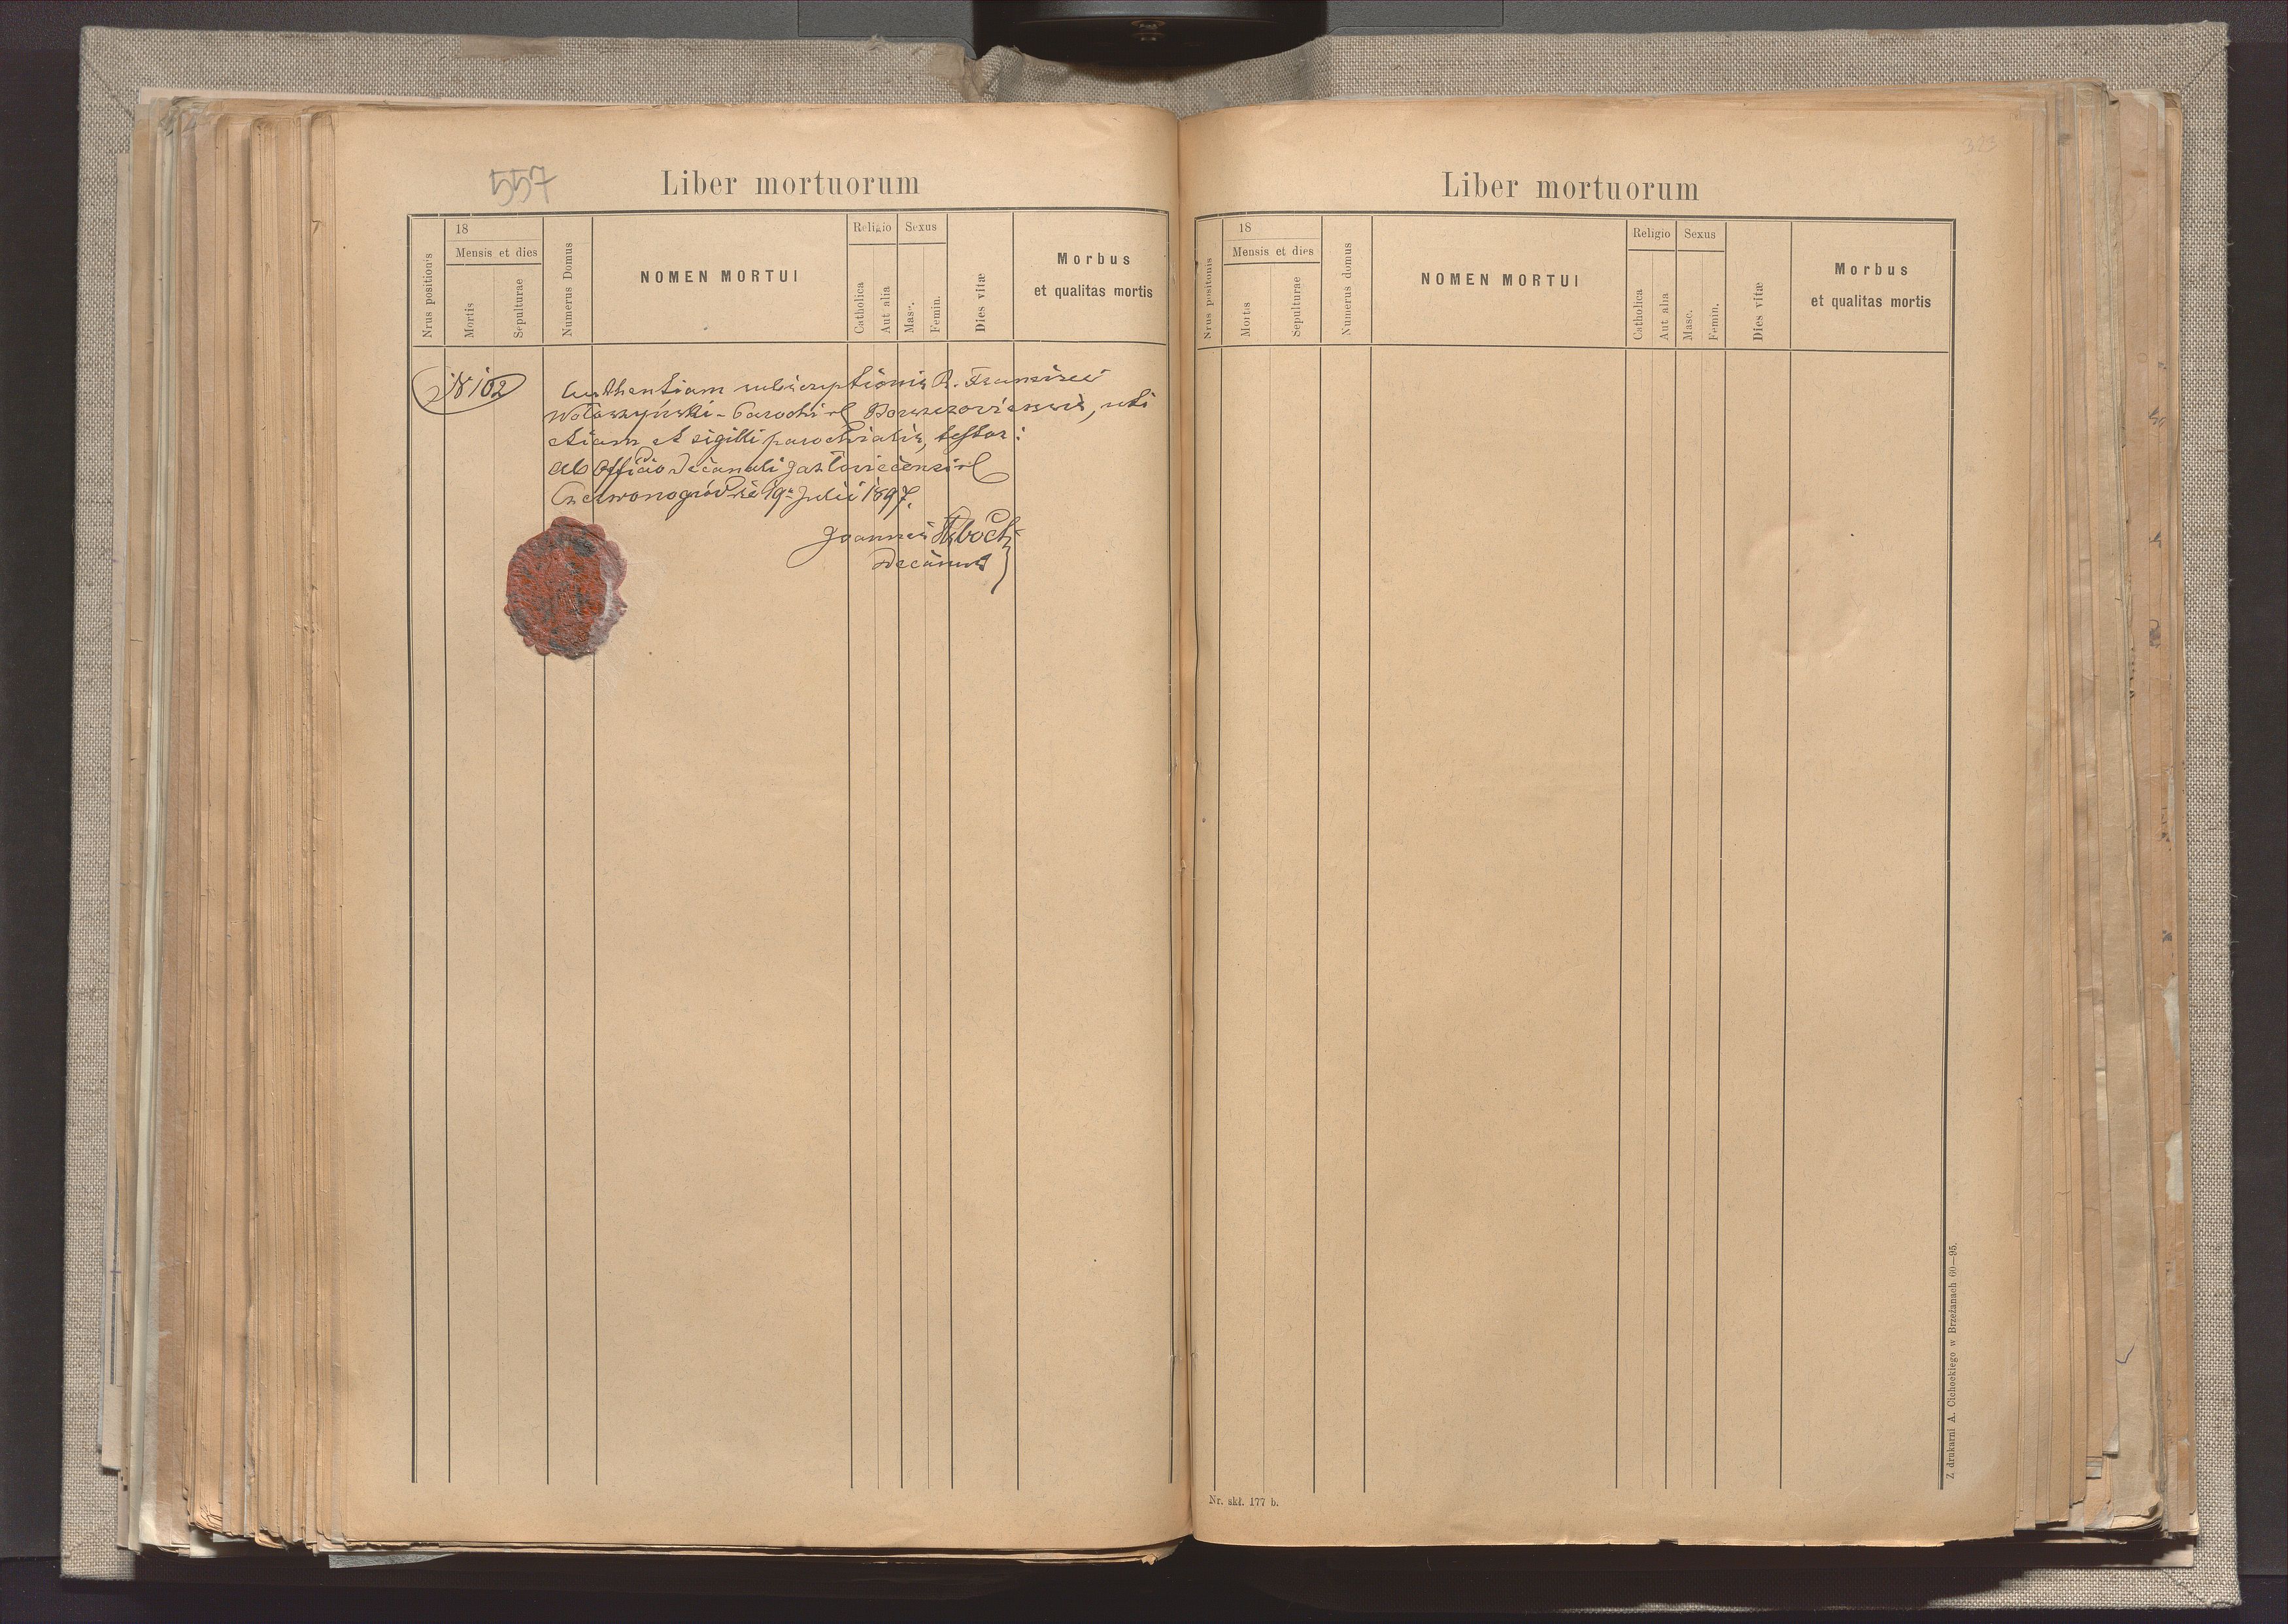 557
Liber mortuorum
Nrus position's
18
Mensis et dies
Mortis
Sepulturae
Numerus Domus
NOMEN MORTUI
Religio
Catholica
Aut alia
Sexus
Masc.
Femin.
Dies vitæ
Morbus
et qualitas mortis
N 102
Authentiam subscriptionis R. Francisci
Wołoszyński - Parochi rl Borszczoviensis, uti
etiam et sigilli parochialis, testor:
Ab Officio Decanali Jazłoviecensi rl
Czerwonogród die 19a Julii 1897.
Joannes
Decanus
Liber mortuorum
323
Nrus positonis
18
Mensis et dies
Mortis
Sepulturae
Numerus domus
NOMEN MORTUI
Religio
Catholica
Aut alia
Sexus
Masc.
Femin.
Dies vitæ
Morbus
et qualitas mortis
Nr. skł. 177 b.
Z drukarni A. Cichockiego w Brzeżanach 60—95.